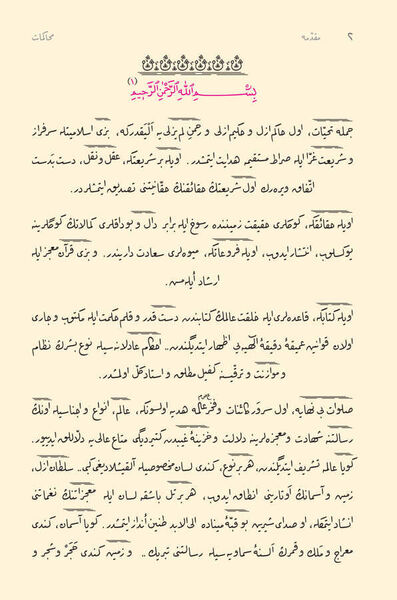 ٢ مقدمه محاكمات
بِسْمِ اللّٰهِ الرَّحْمٰنِ الرَّحِيمِ (١)
جمله تحيّات، اول حاكم ازل و حكيم لم يزلى و رحمٰن لم يزلى يه أليقدركه، بزى اسلاميتله سرفراز
و شريعت غرّا ايله صراط مستقيمه هدايت ايتمشدر. اويله بر شريعتكه، عقل و نقل، دست بدست
اتّفاق ويره رك اول شريعتك حقائقنك حقانيتنى تصديق ايتمشلردر.
اويله حقائقكه، كوكلرى حقيقت زميننده رسوخ ايله برابر دال و بوداقلرى كمالاتك كوكلرينه
يوكسلوب، انتشار ايدوب، اويله فروعاتكه، ميوه لرى سعادت دارين در. و بزى قرآن معجز ايله
ارشاد أيله مش.
اويله كتابكه، قاعده لرى ايله خلقت عالمك كتابندن دست قدر و قلم حكمت ايله مكتوب و جارى
اولان قوانين عميقهٔ دقيقهٔ الٰهيه يى اظهار ايتديگندن.. احكام عادلانه سيله نوع بشرك نظام
و موازنت و ترقيسنه كفيل مطلق و استاد كلّ اولمشدر.
صلوات بى نهايه، اول سرور كائنات و فخر عالمه هديه اولسونكه، عالم، انواع و اجناسيله اونك
رسالتنه شهادت و معجزه لرينه دلالت و خزينهٔ غيبدن كتيرديگى، متاع عالى يه دلاللق ايديور.
كويا عالم تشريف ايتديگندن، هر بر نوع، كندى لسان مخصوصيله آلقيشلاديغى كبى.. سلطان ازل،
زمين و آسمانك اوتارينى انطاق ايدوب، هر بر تل باشقه لسان ايله معجزاتنك نغماتنى
انشاد ايتمكله، او صداى شيرين بو قبّهٔ ميناده الى الابد طنين أنداز ايتمشدر. كويا آسمان، كندى
معراج و ملك و قمرك ألسنهٔ سماويه سيله رسالتنى تبريك.. و زمين كندى حَجَر و شجر و